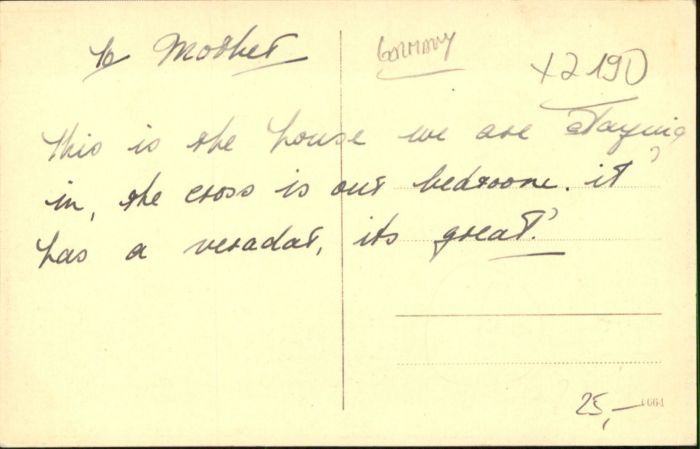 to Mother
GERMANY
X2190
This is the house we are staying
in, the cross is our bedroom. it
has a veradat, its great!
25,-